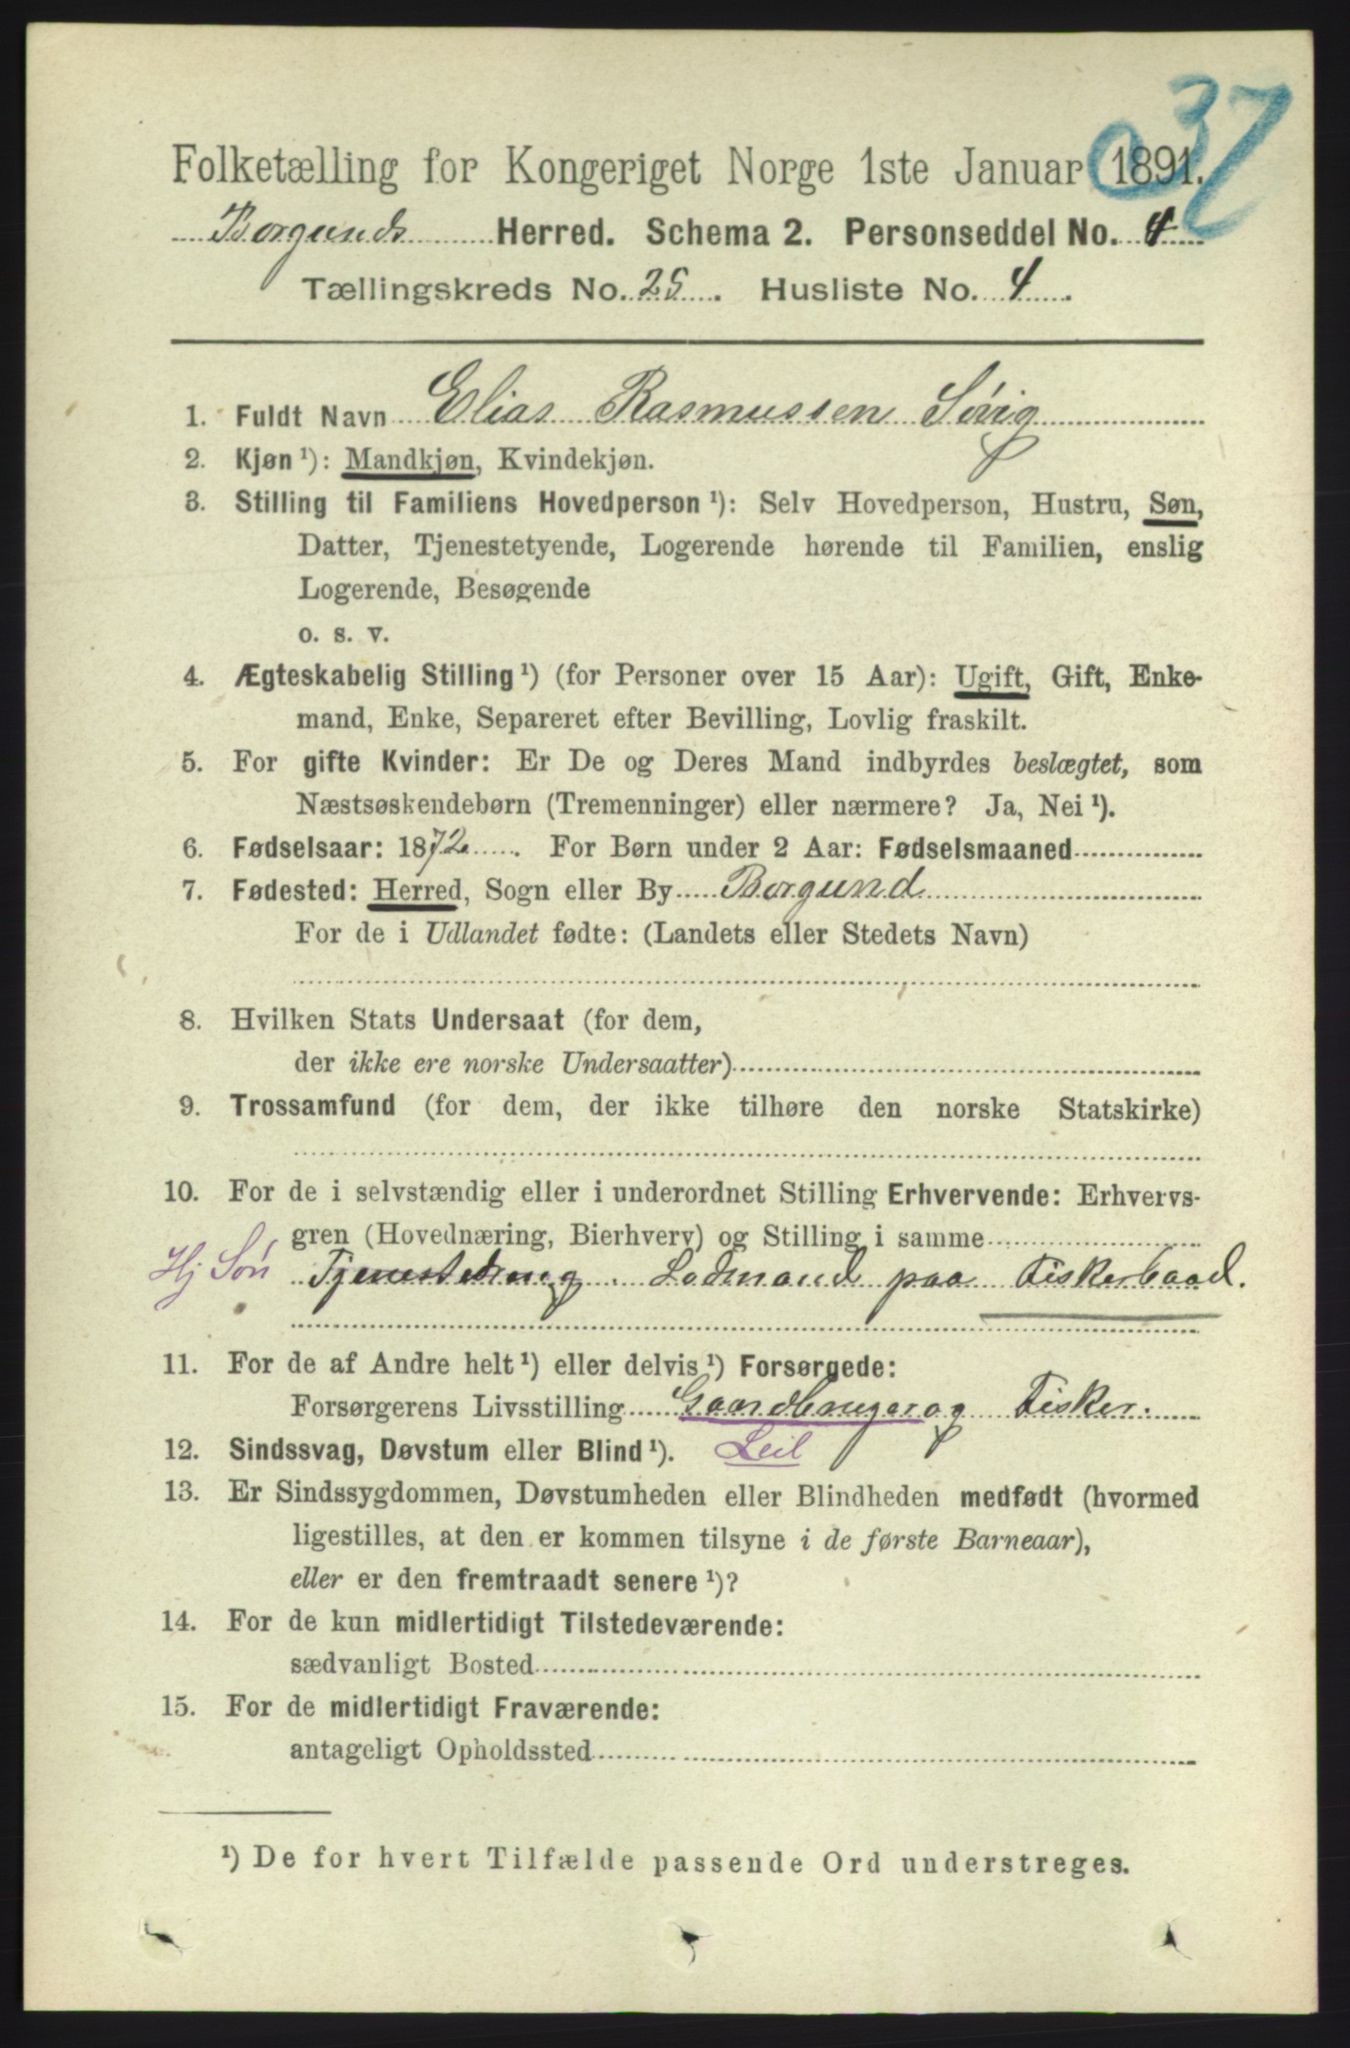 37
Folketælling for Kongeriget Norge 1ste Januar 1891.
Borgunds Herred. Schema 2. Personseddel No. 4
Tællingskreds No. 25. Husliste No. 4.
1. Fuldt Navn Elias Rasmussen Sørig
2. Kjøn ¹): Mandkjøn, Kvindekjøn.
3. Stilling til Familiens Hovedperson ¹): Selv Hovedperson, Hustru, Søn,
Datter, Tjenestetyende, Logerende hørende til Familien, enslig
Logerende, Besøgende
o. s. v.
4. Ægteskabelig Stilling ¹) (for Personer over 15 Aar): Ugift, Gift, Enke-
mand, Enke, Separeret efter Bevilling, Lovlig fraskilt.
5. For gifte Kvinder: Er De og Deres Mand indbyrdes beslægtet, som
Næstsøskendebørn (Tremenninger) eller nærmere? Ja, Nei ¹).
6. Fødselsaar: 1872. For Børn under 2 Aar: Fødselsmaaned
7. Fødested: Herred, Sogn eller By Borgund
For de i Udlandet fødte: (Landets eller Stedets Navn)
8. Hvilken Stats Undersaat (for dem,
der ikke ere norske Undersaatter)
9. Trossamfund (for dem, der ikke tilhøre den norske Statskirke)
10. For de i selvstændig eller i underordnet Stilling Erhvervende: Erhvervs-
gren (Hovednæring, Bierhverv) og Stilling i samme
Hj Søn Tjenestedreng. Lodmand paa Fiskerbaad.
11. For de af Andre helt ¹) eller delvis ¹) Forsørgede:
Forsørgerens Livsstilling Gaardbruger og Fisker.
12. Sindssvag, Døvstum eller Blind ¹). Leil
13. Er Sindssygdommen, Døvstumheden eller Blindheden medfødt (hvormed
ligestilles, at den er kommen tilsyne i de første Barneaar),
eller er den fremtraadt senere ¹)?
14. For de kun midlertidigt Tilstedeværende:
sædvanligt Bosted
15. For de midlertidigt Fraværende:
antageligt Opholdssted
¹) De for hvert Tilfælde passende Ord understreges.